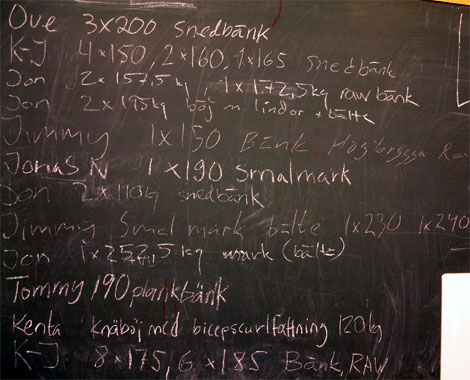 Ove 3x200 snedbänk
K-J 4x150, 2x160, 1x165 snedbänk
Jon 2x157,5kg, 1x172,5kg raw bänk
Jon 2x195kg böj m. lindor + bälte
Jimmy 1x150 Bänk Högbrygga Raw
Jonas N 1x190 smalmark
Jon 2x110kg snedbänk
Jimmy Smal mark bälte 1x230 1x240
Jon 1x252,5kg mark (bälte)
Tommy 190 plankbänk
Kenta Knäböj med bicepscurlfattning 120kg
K-J 8x175, 6x185 Bänk, RAW